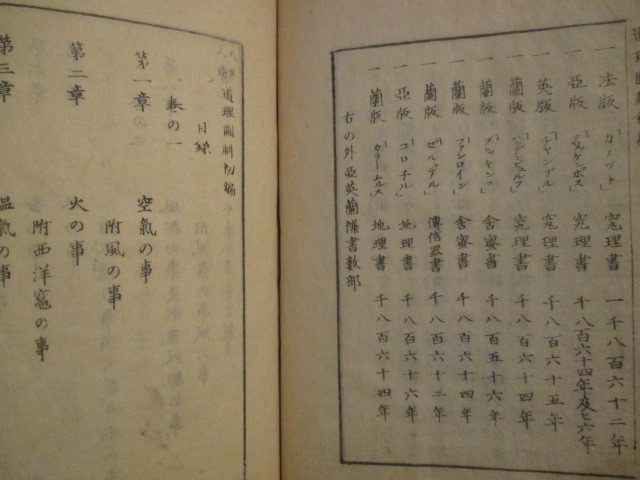 一 法版 「ガノット」 窮理書 一千八百六十二年
一 亞版 「クワッケンボス」 窮理書 千八百六十四年及七六年
一 英版 「チャンブル」 窮理書 千八百六十五年
一 蘭版 窮理書 千八百六十四年
一 蘭版 舎密書 千八百五十六年
一 蘭版 舎密書 千八百六十四年
一 蘭版 傳信器書 千八百六十二年
一 亞版 「コロ子ル」 地理書 千八百六十六年
一 蘭版 地理書 千八百六十四年
右の外亞英蘭雜書數部
道理圖解初編
目録
巻の一
第一章 空氣の事
附風の事
第二章 火の事
附西洋竃の事
第三章 温氣の事